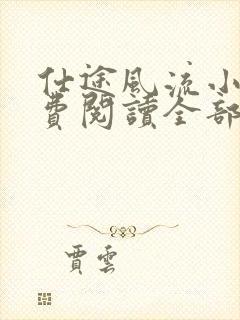 仕途風流小
費閱讀全部
賈雲